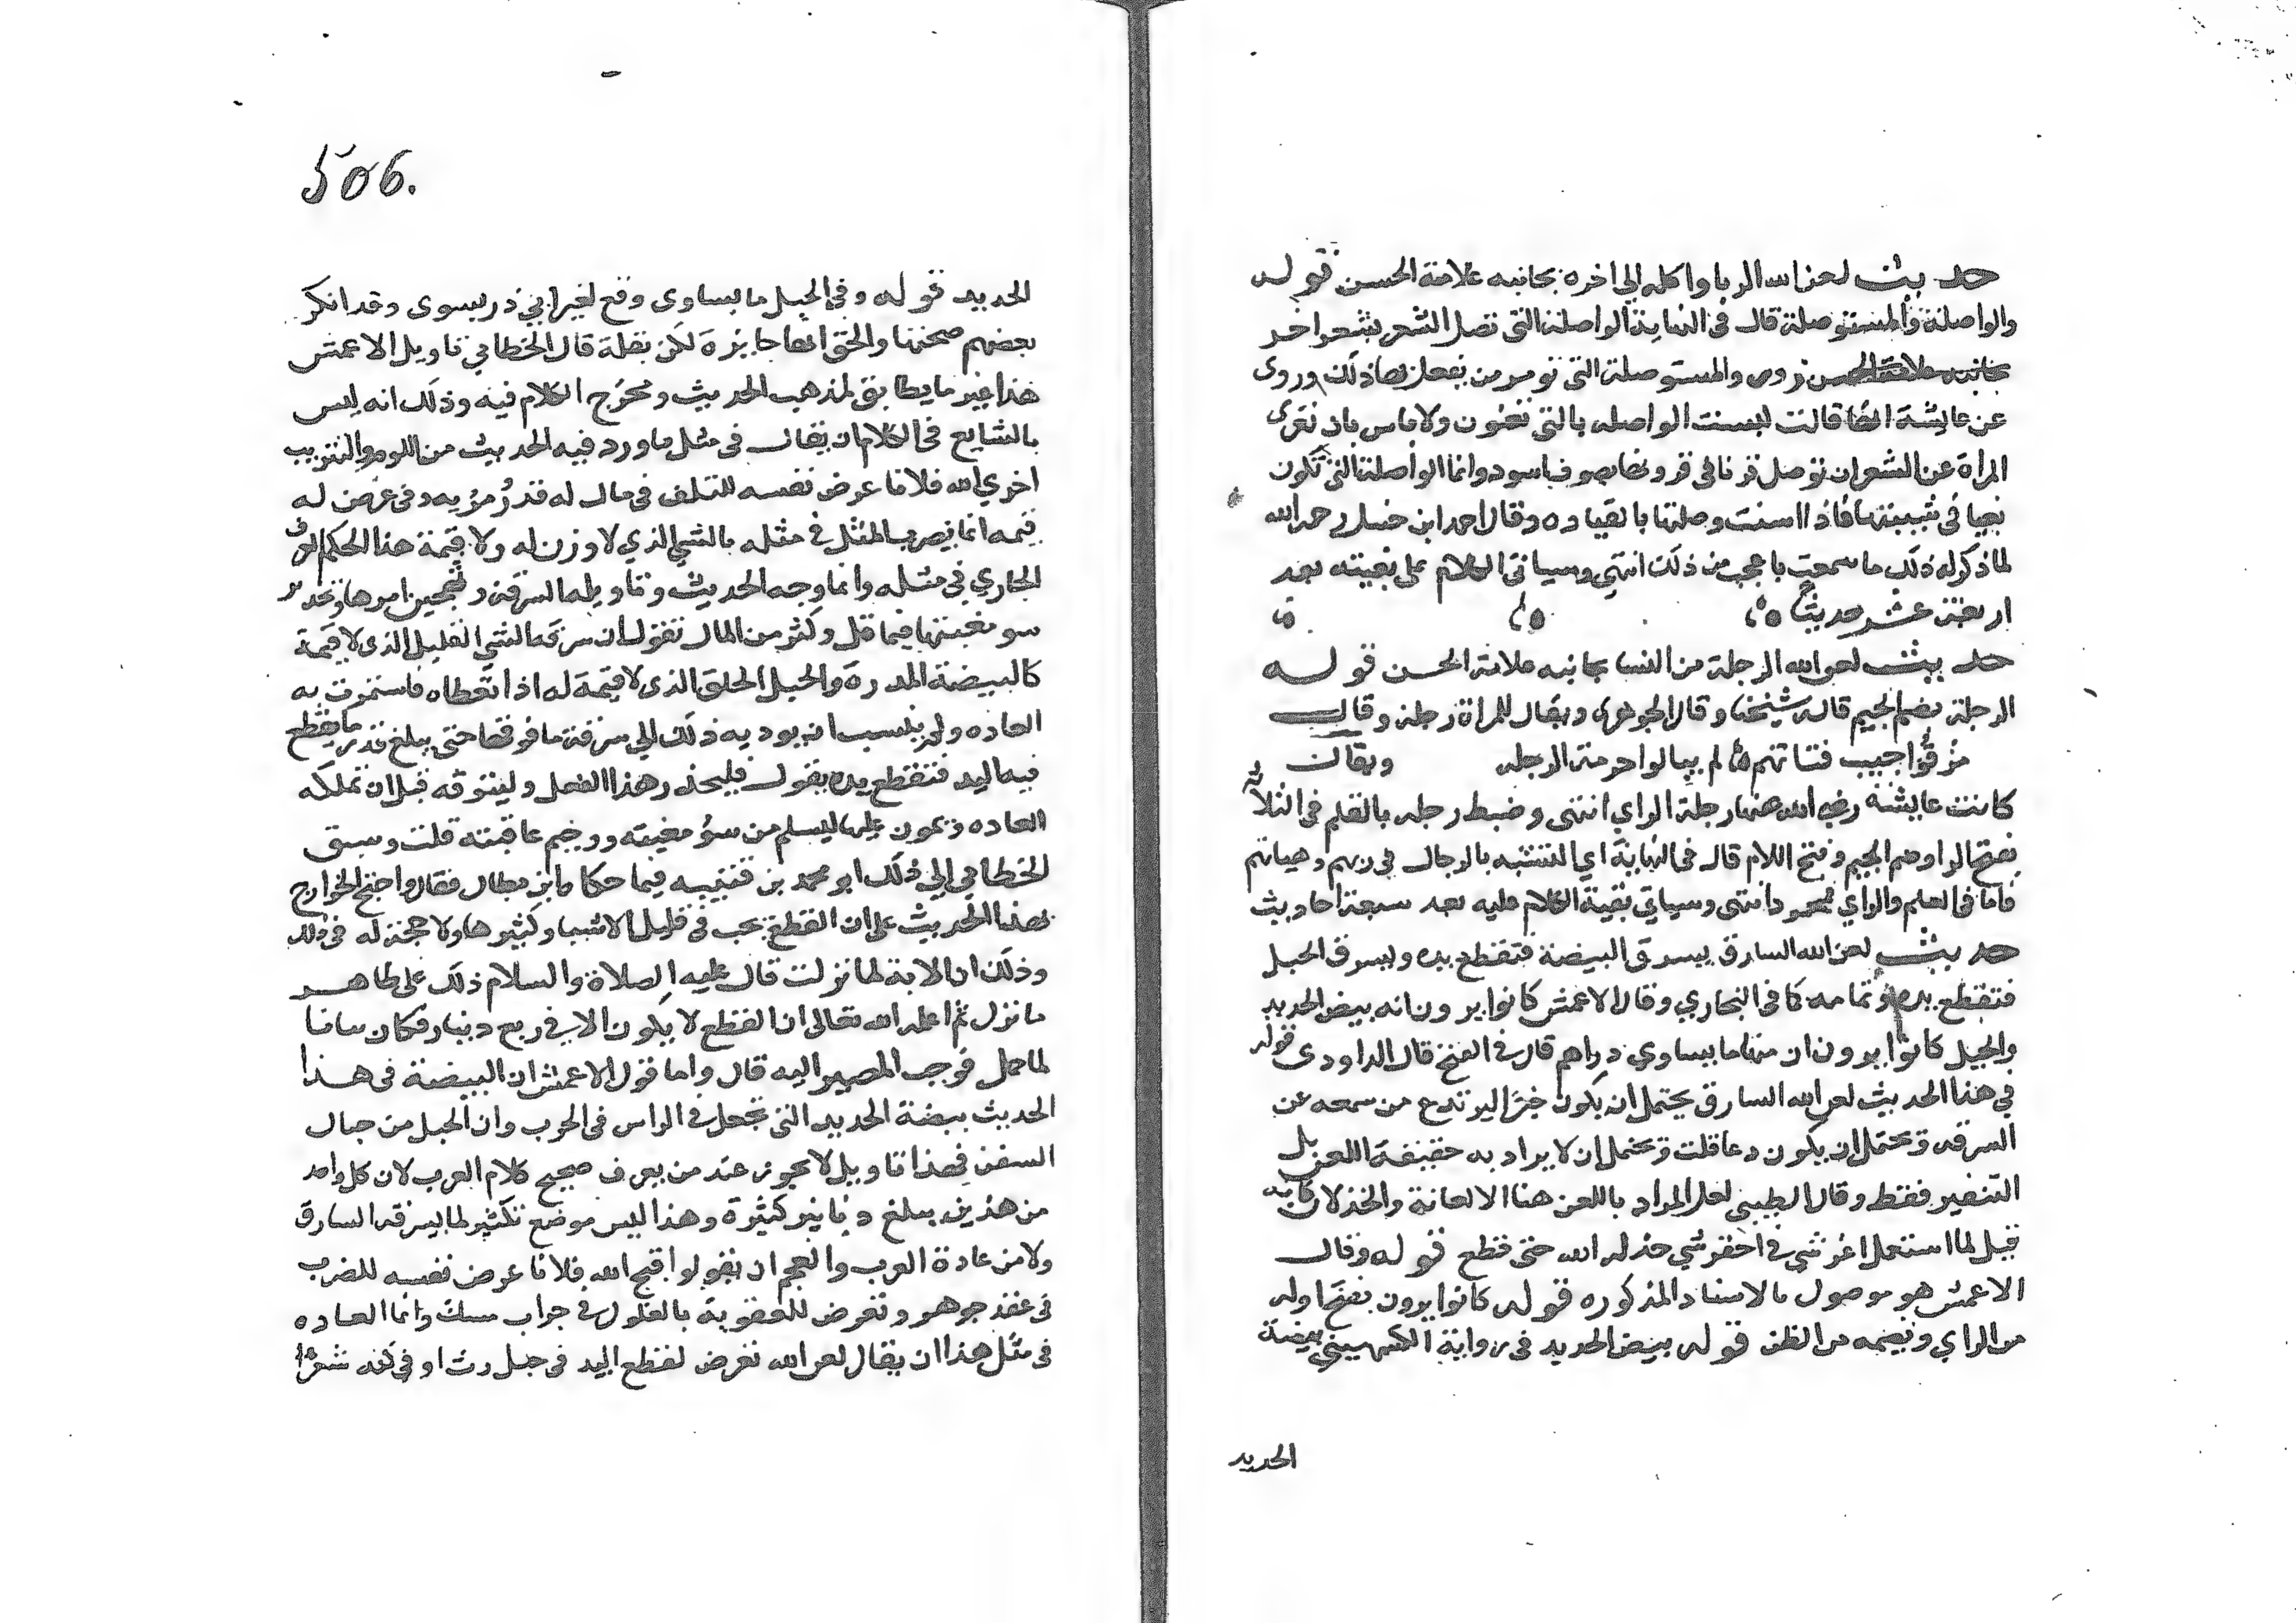 حديث لعن الله الربا واكله الي اخره بجانبه علامة الحسن قوله
والواصلة والمستوصلة قال في النهاية الواصلة التي تصل الشعر بشعر اخر
زور والمستوصلة التي تومر من يفعل بها ذلك وروى
عن عايشة انها قالت ليست الواصله بالتي تعنون ولا باس بان تعرى
المراة عن الشعر ان توصل قرنا في قرونها بصوف اسود وانما الواصلة التي تكون
بغيا في شبيبتها فاذا اسنت وصلتها بالقياده وقال احمد ابن حنبل رحمه الله
لما ذكر له ذلك ما سمعت باعجب من ذلك انتهي وسياتي الكلام على بقيته بعد
اربعة عشر حديثا
حديث لعن الله الرجلة من النسا بجانبه علامة الحسن قوله
الرجلة بضم الجيم قاله شيخنا وقال الجوهري ويقال للمراة رجلة وقال
مزقوا جيب فتاتهم لم يبالوا حرمة الرجله ويقال
كانت عايشة رضي الله عنها رجلة الراي انتهى وضبط رجله بالقلم في الثلاثة
بفتح الرا وضم الجيم وفتح اللام قال في النهاية اي المتشبه بالرجال في زيهم وهياتهم
فاما في العلم والراي فمحمود انتهى وسياتي بقية الكلام عليه بعد سبعة احاديث
حديث لعن الله السارق يسرق البيضة فتقطع يده ويسرق الحبل
فتقطع يده وتمامه كما في البخاري وقال الاعمش كانوا يرون انه بيض الحديد
والحبل كانوا يرون ان منها ما يساوي دراهم قال في الفتح قال الداودى قوله
في هذا الحديث لعن الله السارق يحتمل ان يكون خبرا ليرتدع من سمعه عن
السرقه ويحتمل ان يكون دعا قلت ويحتمل ان لا يراد به حقيقة اللعن بل
التنفير فقط وقال الطيبي لعل المراد باللعن هنا الاهانة والخذلان كانه
قيل لما استعمل اعز شي في احقر شي خذله الله حتى قطع قوله وقال
الاعمش هو موصول بالاسناد المذكوره قوله كانوا يرون بفتح اوله
من الراي وبضمه من الظن قوله بيض الحديد في رواية الكشميهني بيضة
الحديد
506.
الحديد قوله وفي الحبل ما يساوى وقع لغير ابي ذر يسوى وقد انكر
بعضهم صحتها والحق انها جايزة لكن بقلة قال الخطابي تاويل الاعمش
هذا غير ما يطابق لمذهب الحديث ومخرج الكلام فيه وذلك انه ليس
بالشايع في الكلام ان يقال في مثل ما ورد فيه الحديث من اللوم والتثريب
اخزي الله فلانا عرض نفسه للتلف في مال له قدر ومزيه وفي عرض له
قيمه انما يضرب المثل في مثله بالشي الذي لا وزن له ولا قيمة هذا الحكم العرف
الجاري في مثله وانما وجه الحديث وتاويله السرقة وتهجين امرها وتحذير
سو مغبتها فيما قل وكثر من المال تقول ان سرقة الشي القليل الذي لا قيمة
كالبيضة المدرة والحبل الخلق الذي لا قيمة له اذا تعطاه فاستمرت به
العاده ولم ينسب ان يوديه ذلك الي سرقة ما فوقها حتى يبلغ قدر ما يقطع
فيه اليد فتقطع يده يقول فليحذر هذا الفعل وليتوقه قبل ان تملكه
العاده ويمون عليها ليسلم من سو مغبته ووخيم عاقبته قلت وسبق
الخطابي الي ذلك ابو محمد بن قتيبه فيما حكاه ابن بطال فقال واحتج الخوارج
بهذا الحديث على ان القطع يجب في قليل الاشيا وكثيرها ولا حجة له في ذلك
وذلك ان الاية لما نزلت قال عليه الصلاة والسلام ذلك على ظاهر
ما نزل ثم اعلمه الله تعالى ان القطع لا يكون الا في ربع دينار فكان بيانا
لما اجمل فوجب المصير اليه قال واما قول الاعمش ان البيضة في هذا
الحديث بيضة الحديد التي تجعل في الراس في الحرب وان الحبل من حبال
السفن فهذا تاويل لا يجوز عند من يعرف صحيح كلام العرب لان كل واحد
من هذين يبلغ دنانير كثيرة وهذا ليس موضع تكثير لما يسرقه السارق
ولا من عادة العرب والعجم ان يقولوا قبح الله فلانا عرض نفسه للضرب
في عقد جوهر وتعرض للعقوبة بالغلول في جراب مسك وانما العاده
في مثل هذا ان يقال لعن الله تعرض لقطع اليد في حبل رث او في كبة شعر او